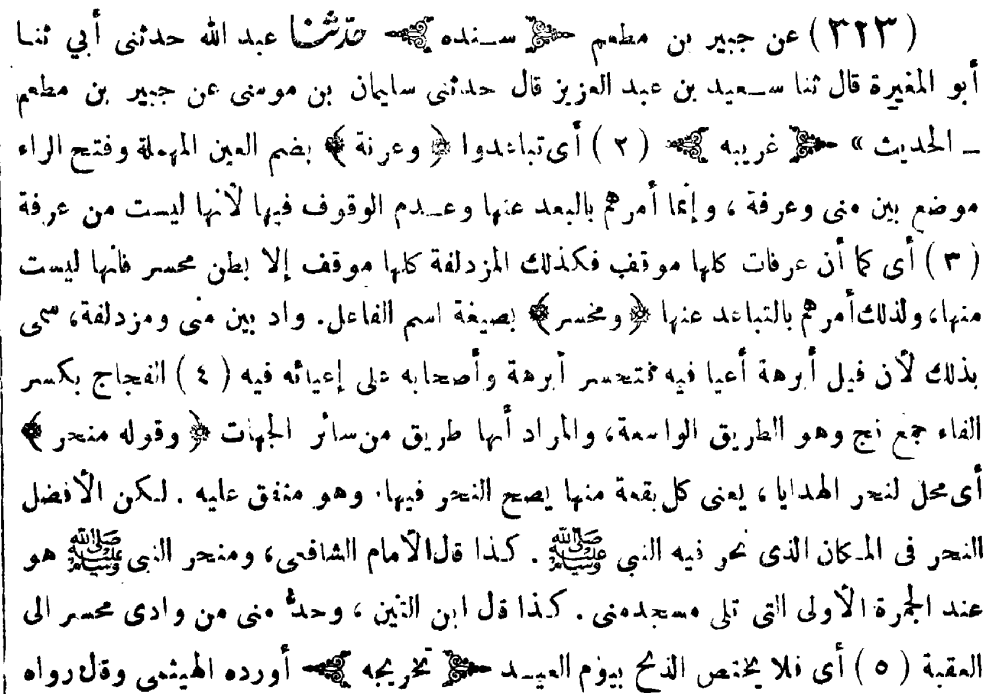 (٣٢٣) عن جبير بن مطعم ﴿ سنده ﴾ حدثنا عبد الله حدثنى أبي ثنا
أبو المغيرة قال ثنا سعيد بن عبد العزيز قال حدثنى سليمان بن موسى عن جبير بن مطعم
ــ الحديث » ﴿ غريبه ﴾ (٢) أى تباعدوا ﴿ وعرنة ﴾ بضم العين المهملة وفتح الراء
موضع بين منى وعرفة ، وإنما أمرهم بالبعد عنها وعدم الوقوف فيها لأنها ليست من عرفة
(٣) أى كما أن عرفات كلها موقف فكذلك المزدلفة كلها موقف إلا بطن محسر فانها ليست
منها، ولذلك أمرهم بالتباعد عنها ﴿ ومحسر ﴾ بصيغة اسم الفاعل. واد بين منى ومزدلفة، سمى
بذلك لأن فيل أبرهة أعيا فيه فتحسر أبرهة وأصحابه على إعيائه فيه (٤) الفجاج بكسر
الفاء جمع فج وهو الطريق الواسعة، والمراد أنها طريق من سائر الجهات ﴿ وقوله منحر ﴾
أى محل لنحر الهدايا ، يعنى كل بقعة منها يصح النحر فيها. وهو متفق عليه . لكن الأفضل
النحر فى المكان الذى نحر فيه النبي ﷺ . كذا قال الأمام الشافعى، ومنحر النبي ﷺ هو
عند الجمرة الأولى التى تلى مسجد منى . كذا قال ابن التين ، وحد منى من وادى محسر الى
العقبة (٥) أى فلا يختص الذبح بيوم العيد ﴿ تخريجه ﴾ أورده الهيثمى وقال رواه